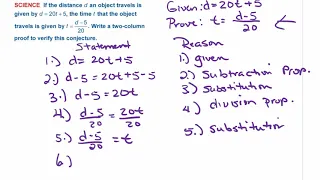 SCIENCE If the distance d an object travels is
given by d = 20t + 5, the time t that the object
travels is given by t = \frac{d − 5}{20}. Write a two-column
proof to verify this conjecture.
Given: d = 20t + 5
Prove: t = \frac{d-5}{20}
Statement
Reason
1.) d = 20t + 5
1.) given
2.) d - 5 = 20t + 5 - 5
2.) Subtraction Prop.
3.) d - 5 = 20t
3.) substitution
4.) \frac{d-5}{20} = \frac{20t}{20}
4.) division prop.
5.) \frac{d-5}{20} = t
5.) substitution
6.)